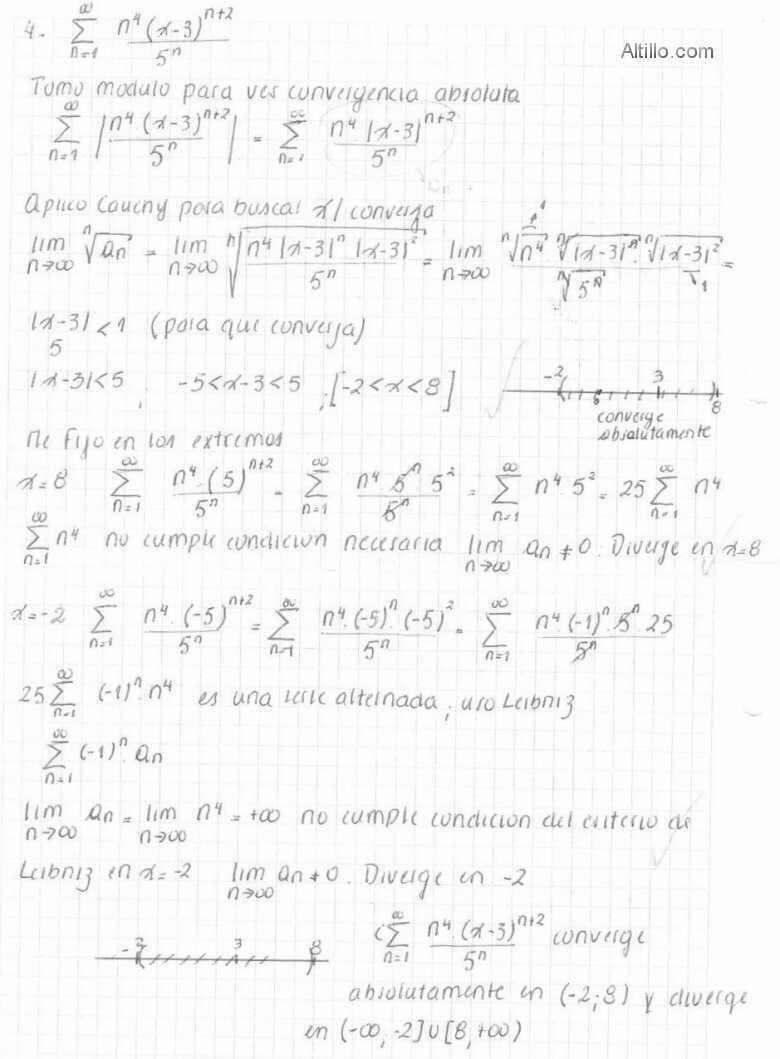 4- ∞∑n=1 n⁴(x-3)ⁿ⁺² / 5ⁿ
Altillo.com
Tomo modulo para ver convergencia absoluta
∞∑n=1 |n⁴ (x-3)ⁿ⁺² / 5ⁿ| = ∞∑n=1 n⁴ |x-3|ⁿ⁺² / 5ⁿ
an
Aplico Cauchy para buscar x/ converja
lim n→∞ ⁿ√an = lim n→∞ ⁿ√(n⁴ |x-3|ⁿ |x-3|² / 5ⁿ) = lim n→∞ ⁿ√n⁴ ⁿ√|x-3|ⁿ · ⁿ√|x-3|² / ⁿ√5ⁿ =
1
1
|x-3| / 5 < 1 (para que converja)
|x-3|<5 ; -5<x-3<5 ; [-2<x<8]
-2 3 8
converge
absolutamente
Me fijo en los extremos
x=8 ∞∑n=1 n⁴·(5)ⁿ⁺² / 5ⁿ = ∞∑n=1 n⁴·5ⁿ 5² / 5ⁿ = ∞∑n=1 n⁴·5² = 25 ∞∑n=1 n⁴
∞∑n=1 n⁴ no cumple condicion necesaria lim n→∞ an ≠ 0. Diverge en x=8
x=-2 ∞∑n=1 n⁴·(-5)ⁿ⁺² / 5ⁿ = ∞∑n=1 n⁴·(-5)ⁿ·(-5)² / 5ⁿ = ∞∑n=1 n⁴·(-1)ⁿ·5ⁿ 25 / 5ⁿ
25 ∞∑n=1 (-1)ⁿ·n⁴ es una serie alternada; uso Leibniz
∞∑n=1 (-1)ⁿ·an
lim n→∞ an = lim n→∞ n⁴ = +∞ no cumple condicion del criterio de
Leibniz en x=-2 lim n→∞ an ≠ 0. Diverge en -2
-2 3 8
∞∑n=1 n⁴·(x-3)ⁿ⁺² / 5ⁿ converge
absolutamente en (-2;8) y diverge
en (-∞,-2]∪[8,+∞)